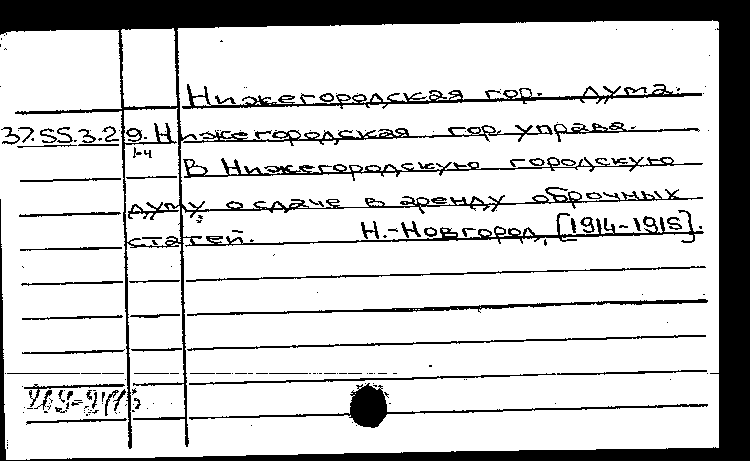 Нижегородская гор. дума.
37.55.3.29. Нижегородская гор управа.
1-4
В Нижегородскую городскую
думу о сдаче в аренду оброчных
статей. Н.-Новгород, [1914-1915].